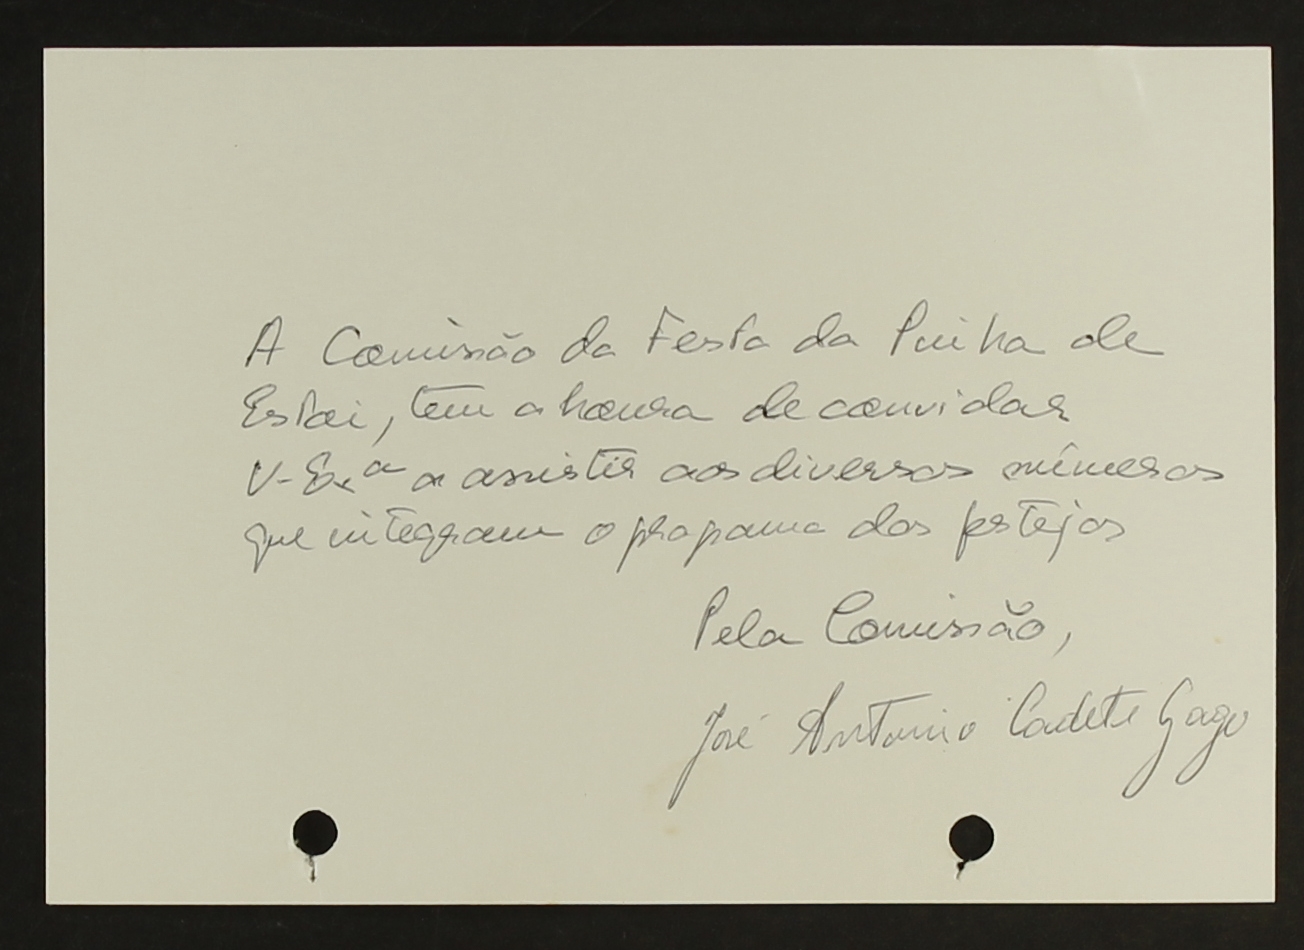 A Comissão da Festa da Pinha de
Estoi, tem a honra de convidar
V. Ex.ª a assistir aos diversos números
que integram o programa dos festejos
Pela Comissão,
José António Cadete Gago